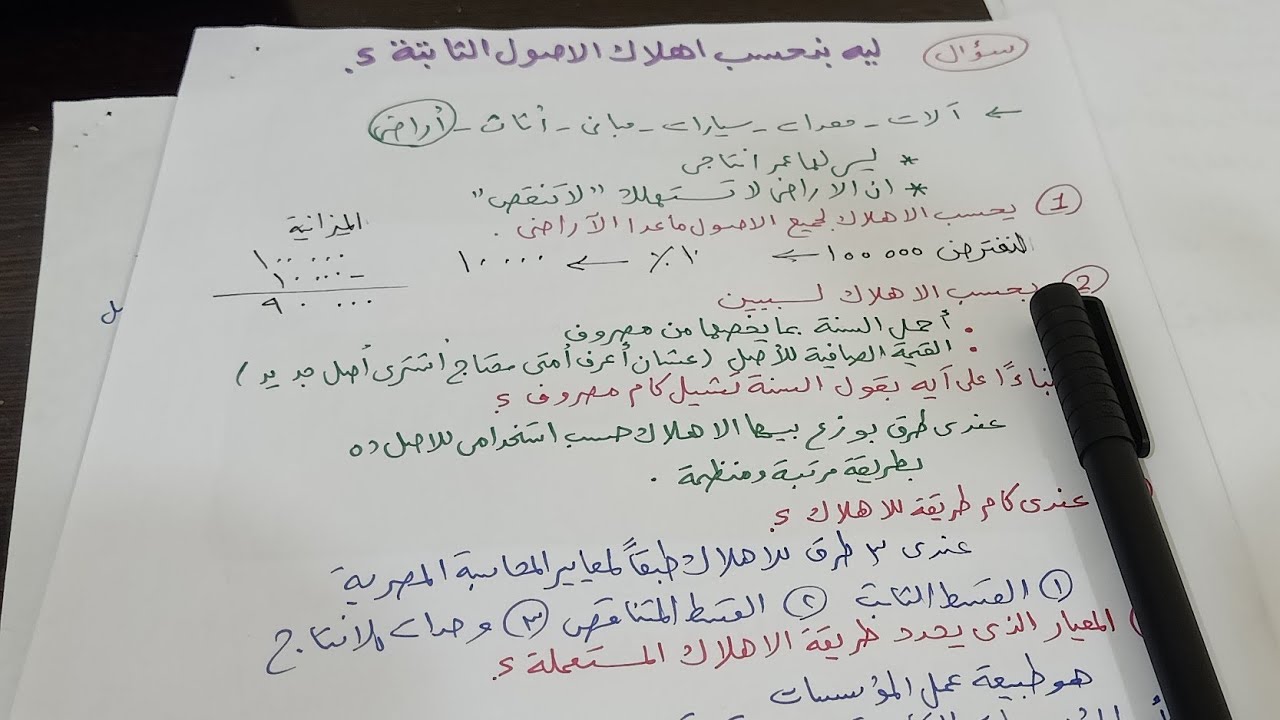 سؤال ليه بنحسب اهلاك الاصول الثابتة ؟
← آلات - معدات - سيارات - مبانى - أثاث - أراضى
* ليس لها عمر انتاجى
* ان الاراضى لا تستهلك "لا تنقص"
① يحسب الاهلاك لجميع الاصول ماعدا الآراضى .
الميزانية
لنفترض ١٠٠٠٠٠ ← ١٠٪ ← ١٠٠٠٠
١٠٠٠٠٠
١٠٠٠٠ -
٩٠٠٠٠
② يحسب الاهلاك لسببين
• أحمل السنة بما يخصها من مصروف
• القيمة الصافية للأصل (عشان أعرف أمتى محتاج اشترى أصل جديد)
بناءًا على آيه بقول السنة تشيل كام مصروف ؟
عندى طرق بوزع بيها الاهلاك حسب استخدامى للاصل ده
بطريقة مرتبة ومنظمة .
عندى كام طريقة للاهلاك ؟
عندى ٣ طرق للاهلاك طبقاً لمعايير المحاسبة المصرية
① القسط الثابت ② القسط المتناقص ③ وحدات الانتاج
المعيار الذى يحدد طريقة الاهلاك المستعملة ؟
هو طبيعة عمل المؤسسات